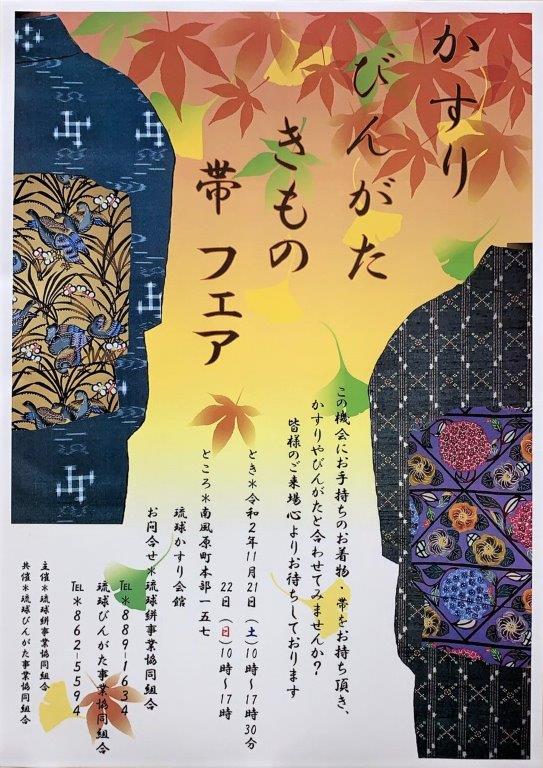 かすり
びんがた
きもの
帯 フェア
この機会にお手持ちのお着物・帯をお持ち頂き、
かすりやびんがたと合わせてみませんか?
皆様のご来場心よりお待ちしております
とき＊令和2年11月21日(土)10時〜17時30分
22日(日)10時〜17時
ところ＊南風原町本部一五七
琉球かすり会館
お問合せ＊琉球絣事業協同組合
TEL＊889-1634
琉球びんがた事業協同組合
TEL＊862-5594
主催＊琉球絣事業協同組合
共催＊琉球びんがた事業協同組合